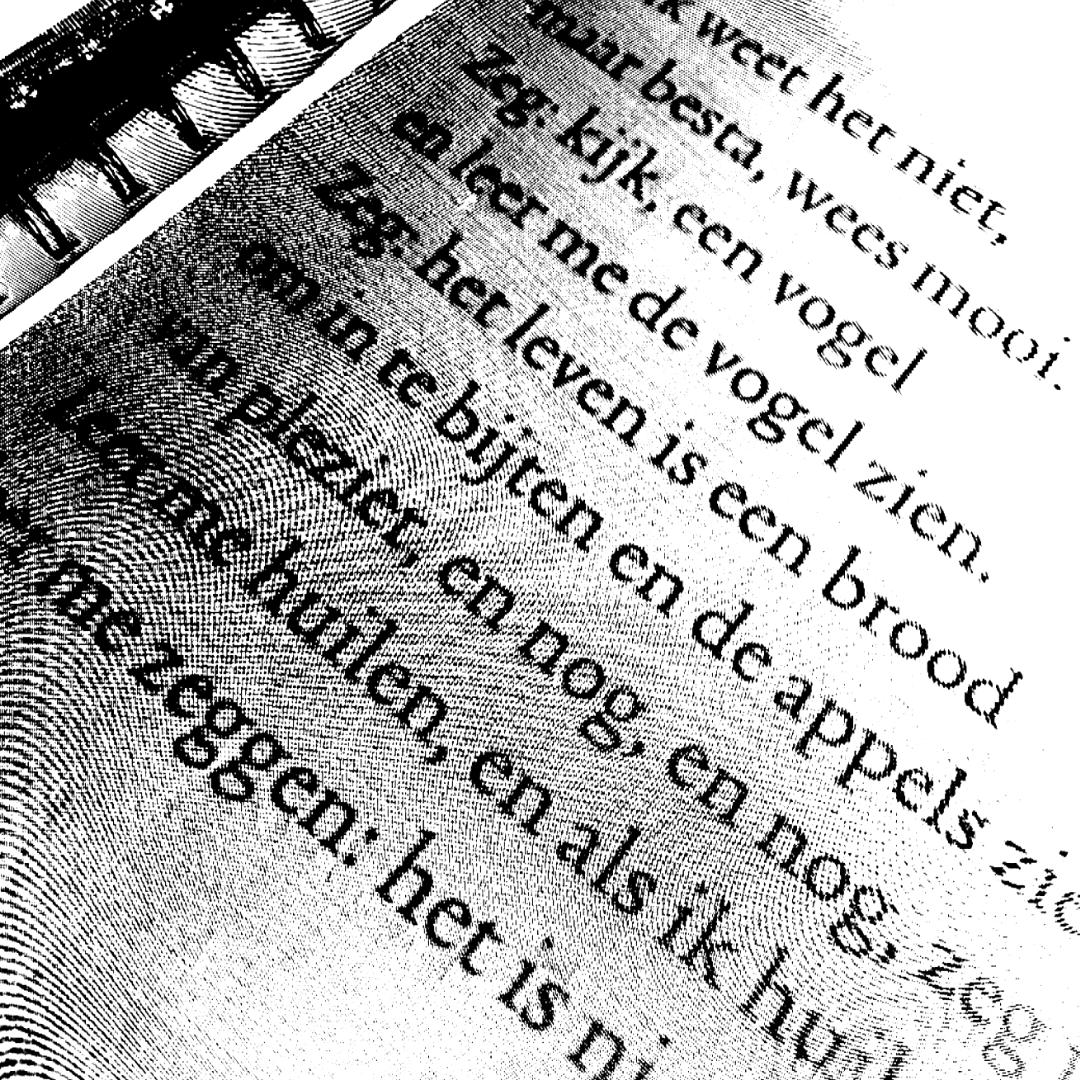 ik weet het niet,
maar besta, wees mooi.
Zeg: kijk, een vogel
en leer me de vogel zien.
Zeg: het leven is een brood
om in te bijten en de appels
van plezier, en nog, en nog, zeg
Leer me huilen, en als ik
me zeggen: het is